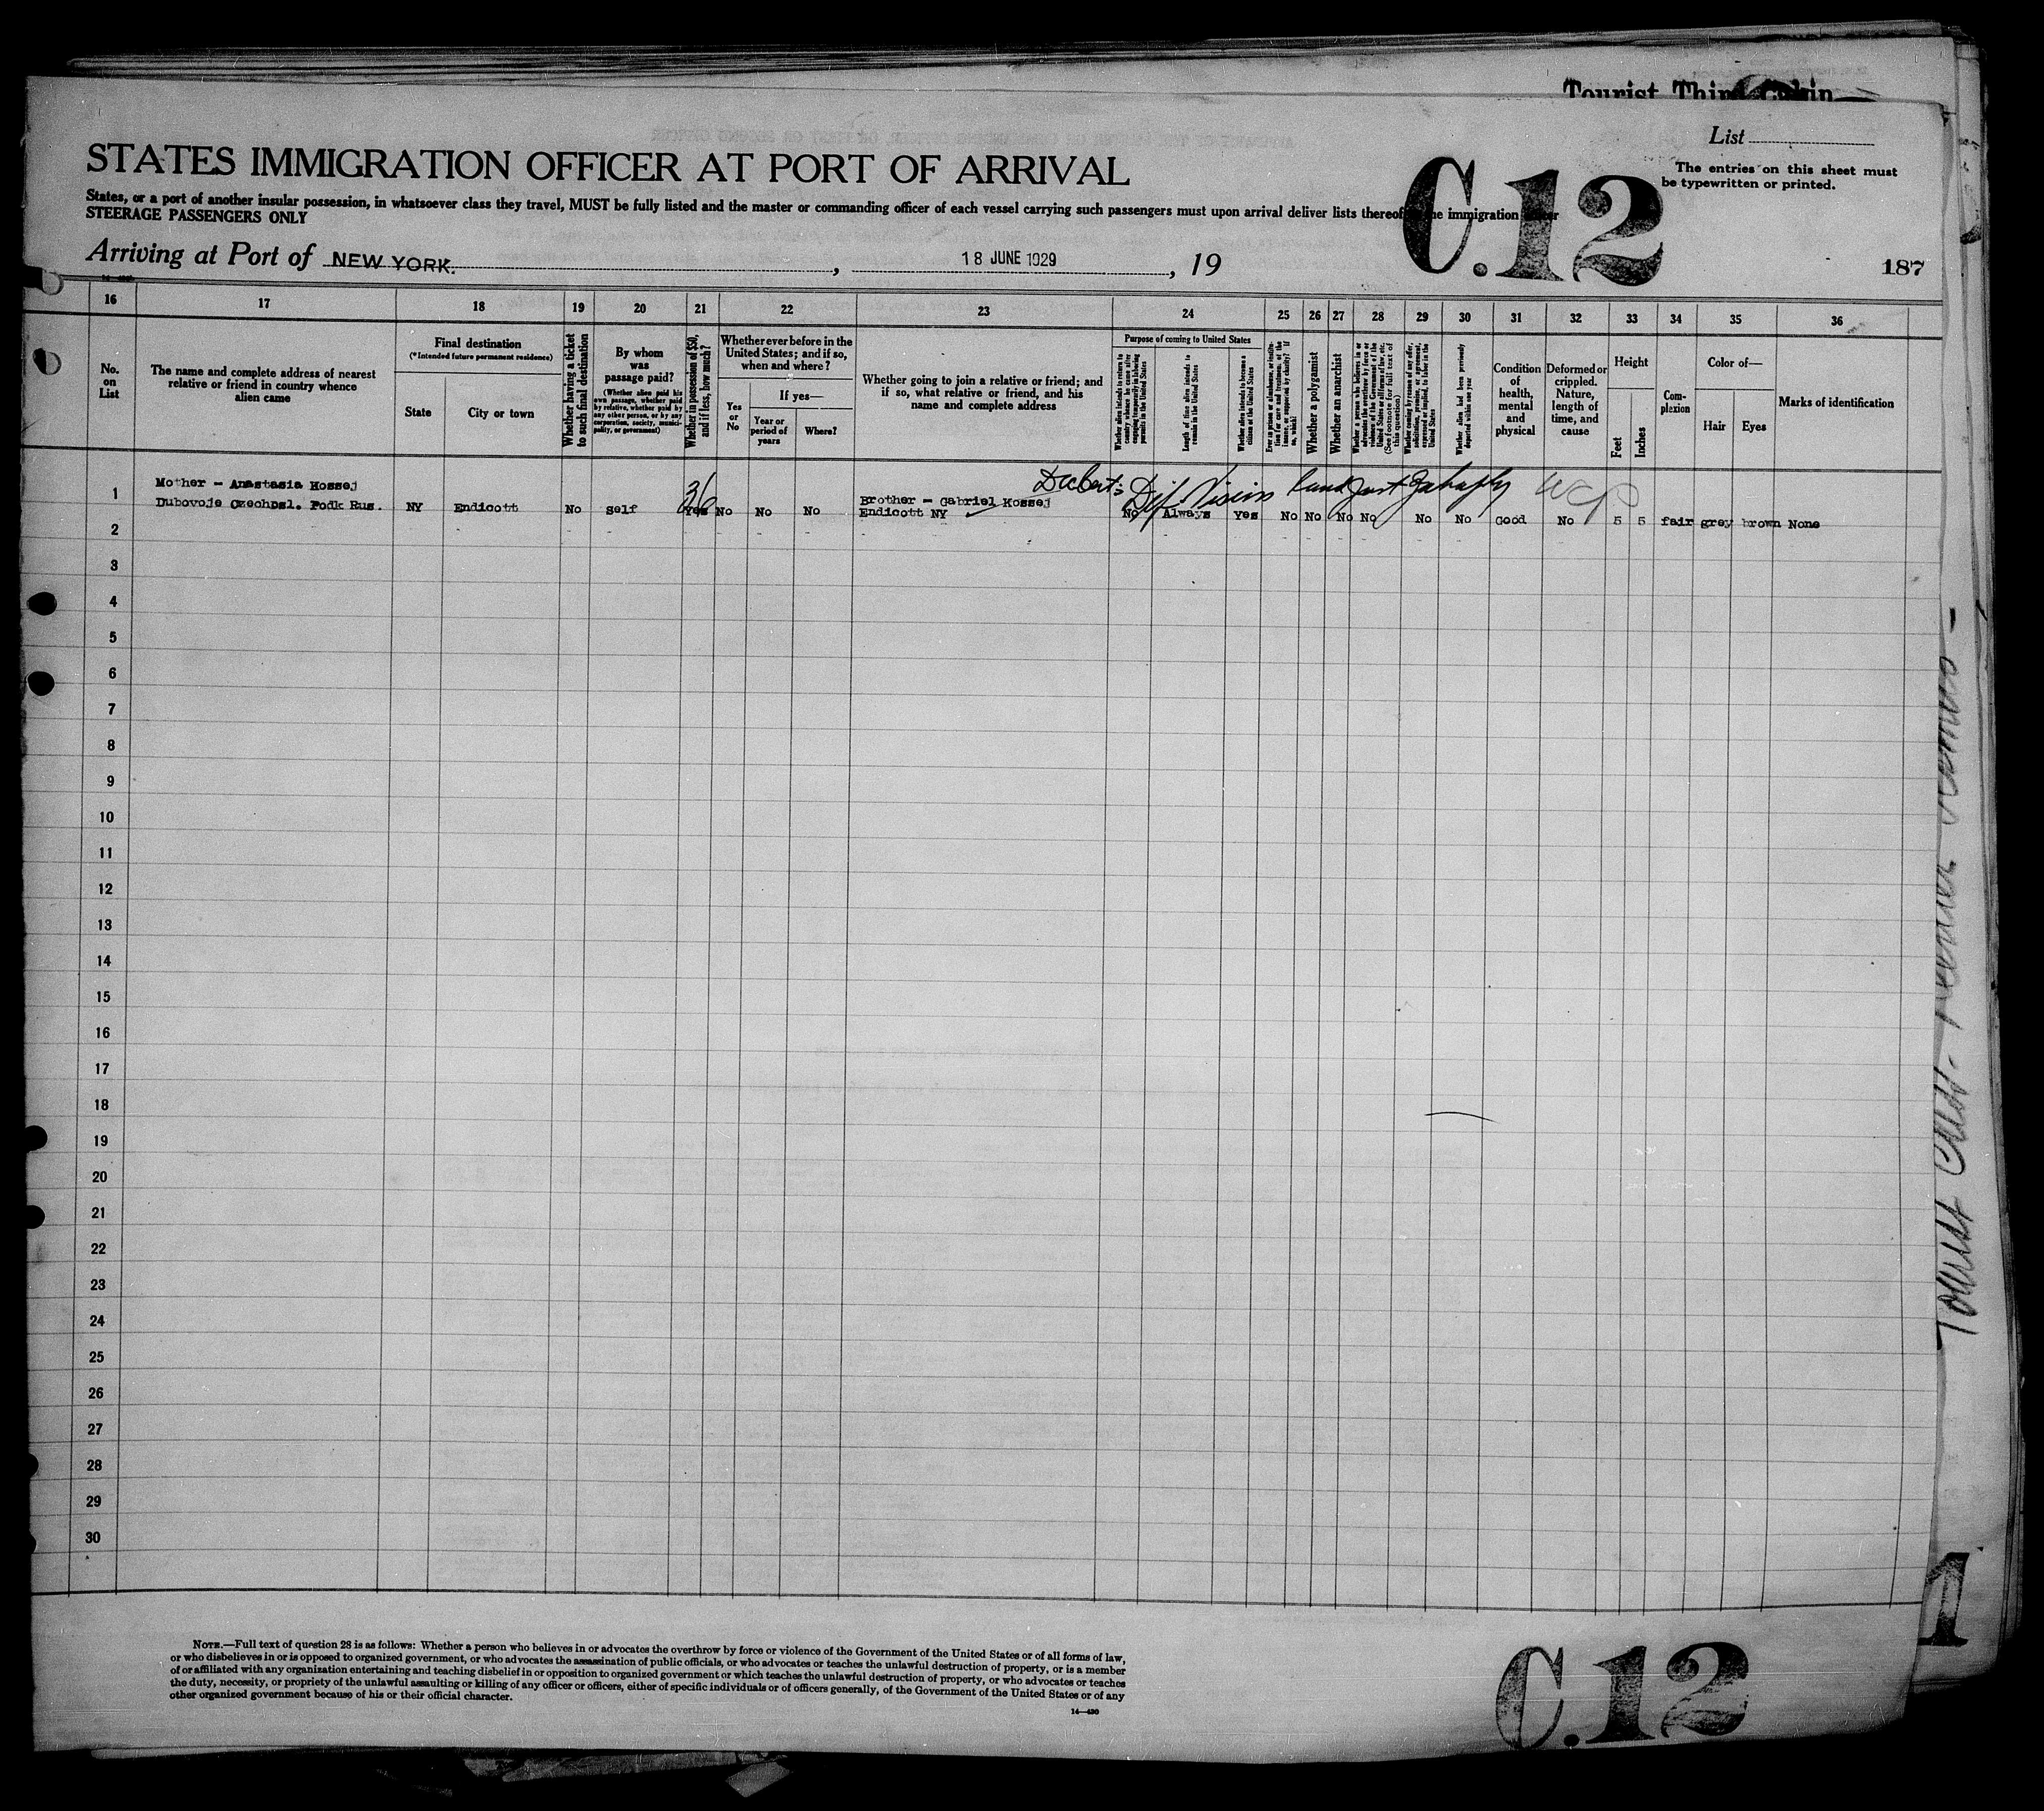 Tourist Third Cabin
List
STATES IMMIGRATION OFFICER AT PORT OF ARRIVAL
C.12
The entries on this sheet must
be typewritten or printed.
States, or a port of another insular possession, in whatsoever class they travel, MUST be fully listed and the master or commanding officer of each vessel carrying such passengers must upon arrival deliver lists thereof the immigration
STEERAGE PASSENGERS ONLY
Arriving at Port of NEW YORK. , 18 JUNE 1929 , 19
187
16 17 18 19 20 21 22 23 24 25 26 27 28 29 30 31 32 33 34 35 36
No.
on
List
The name and complete address of nearest
relative or friend in country whence
alien came
Final destination
(*Intended future permanent residence)
State
City or town
Whether having a ticket
to such final destination
By whom
was
passage paid?
(Whether alien paid his
own passage, whether paid
by relative, whether paid by
any other person, or by any
corporation, society, munici-
pality, or government)
Whether in possession of $50,
and if less, how much?
Whether ever before in the
United States; and if so,
when and where?
Yes
or
No
If yes—
Year or
period of
years
Where?
Whether going to join a relative or friend; and
if so, what relative or friend, and his
name and complete address
Purpose of coming to United States
Whether alien intends to return to
country whence he came after
engaging temporarily in laboring
pursuits in the United States
Length of time alien intends to
remain in the United States
Whether alien intends to become a
citizen of the United States
Ever in prison or almshouse, or institu-
tion for care and treatment of the
insane, or supported by charity? If
so, which?
Whether a polygamist
Whether an anarchist
Whether a person who believes in or
advocates the overthrow by force or
violence of the Government of the
United States or all forms of law, etc.
(See footnote for full text of
this question)
Whether coming by reason of any offer,
solicitation, promise, or agreement,
expressed or implied, to labor in the
United States
Whether alien had been previously
deported within one year
Condition
of
health,
mental
and
physical
Deformed or
crippled.
Nature,
length of
time, and
cause
Height
Feet
Inches
Com-
plexion
Color of—
Hair
Eyes
Marks of identification
1
Mother - Anastasia Kossej
Dubovoje Czechosl. Podk Rus. NY Endicott No self 36 Yes No No No
Brother - Gabriel Kossej
Endicott NY No Always Yes No No No No No No Good No 5 5 fair grey brown None
2
3
4
5
6
7
8
9
10
11
12
13
14
15
16
17
18
19
20
21
22
23
24
25
26
27
28
29
30
Tourist
NOTE.—Full text of question 28 is as follows: Whether a person who believes in or advocates the overthrow by force or violence of the Government of the United States or of all forms of law,
or who disbelieves in or is opposed to organized government, or who advocates the assassination of public officials, or who advocates or teaches the unlawful destruction of property, or is a member
of or affiliated with any organization entertaining and teaching disbelief in or opposition to organized government or which teaches the unlawful destruction of property, or who advocates or teaches
the duty, necessity, or propriety of the unlawful assaulting or killing of any officer or officers, either of specific individuals or of officers generally, of the Government of the United States or of any
other organized government because of his or their official character.
14—430
C.12
1